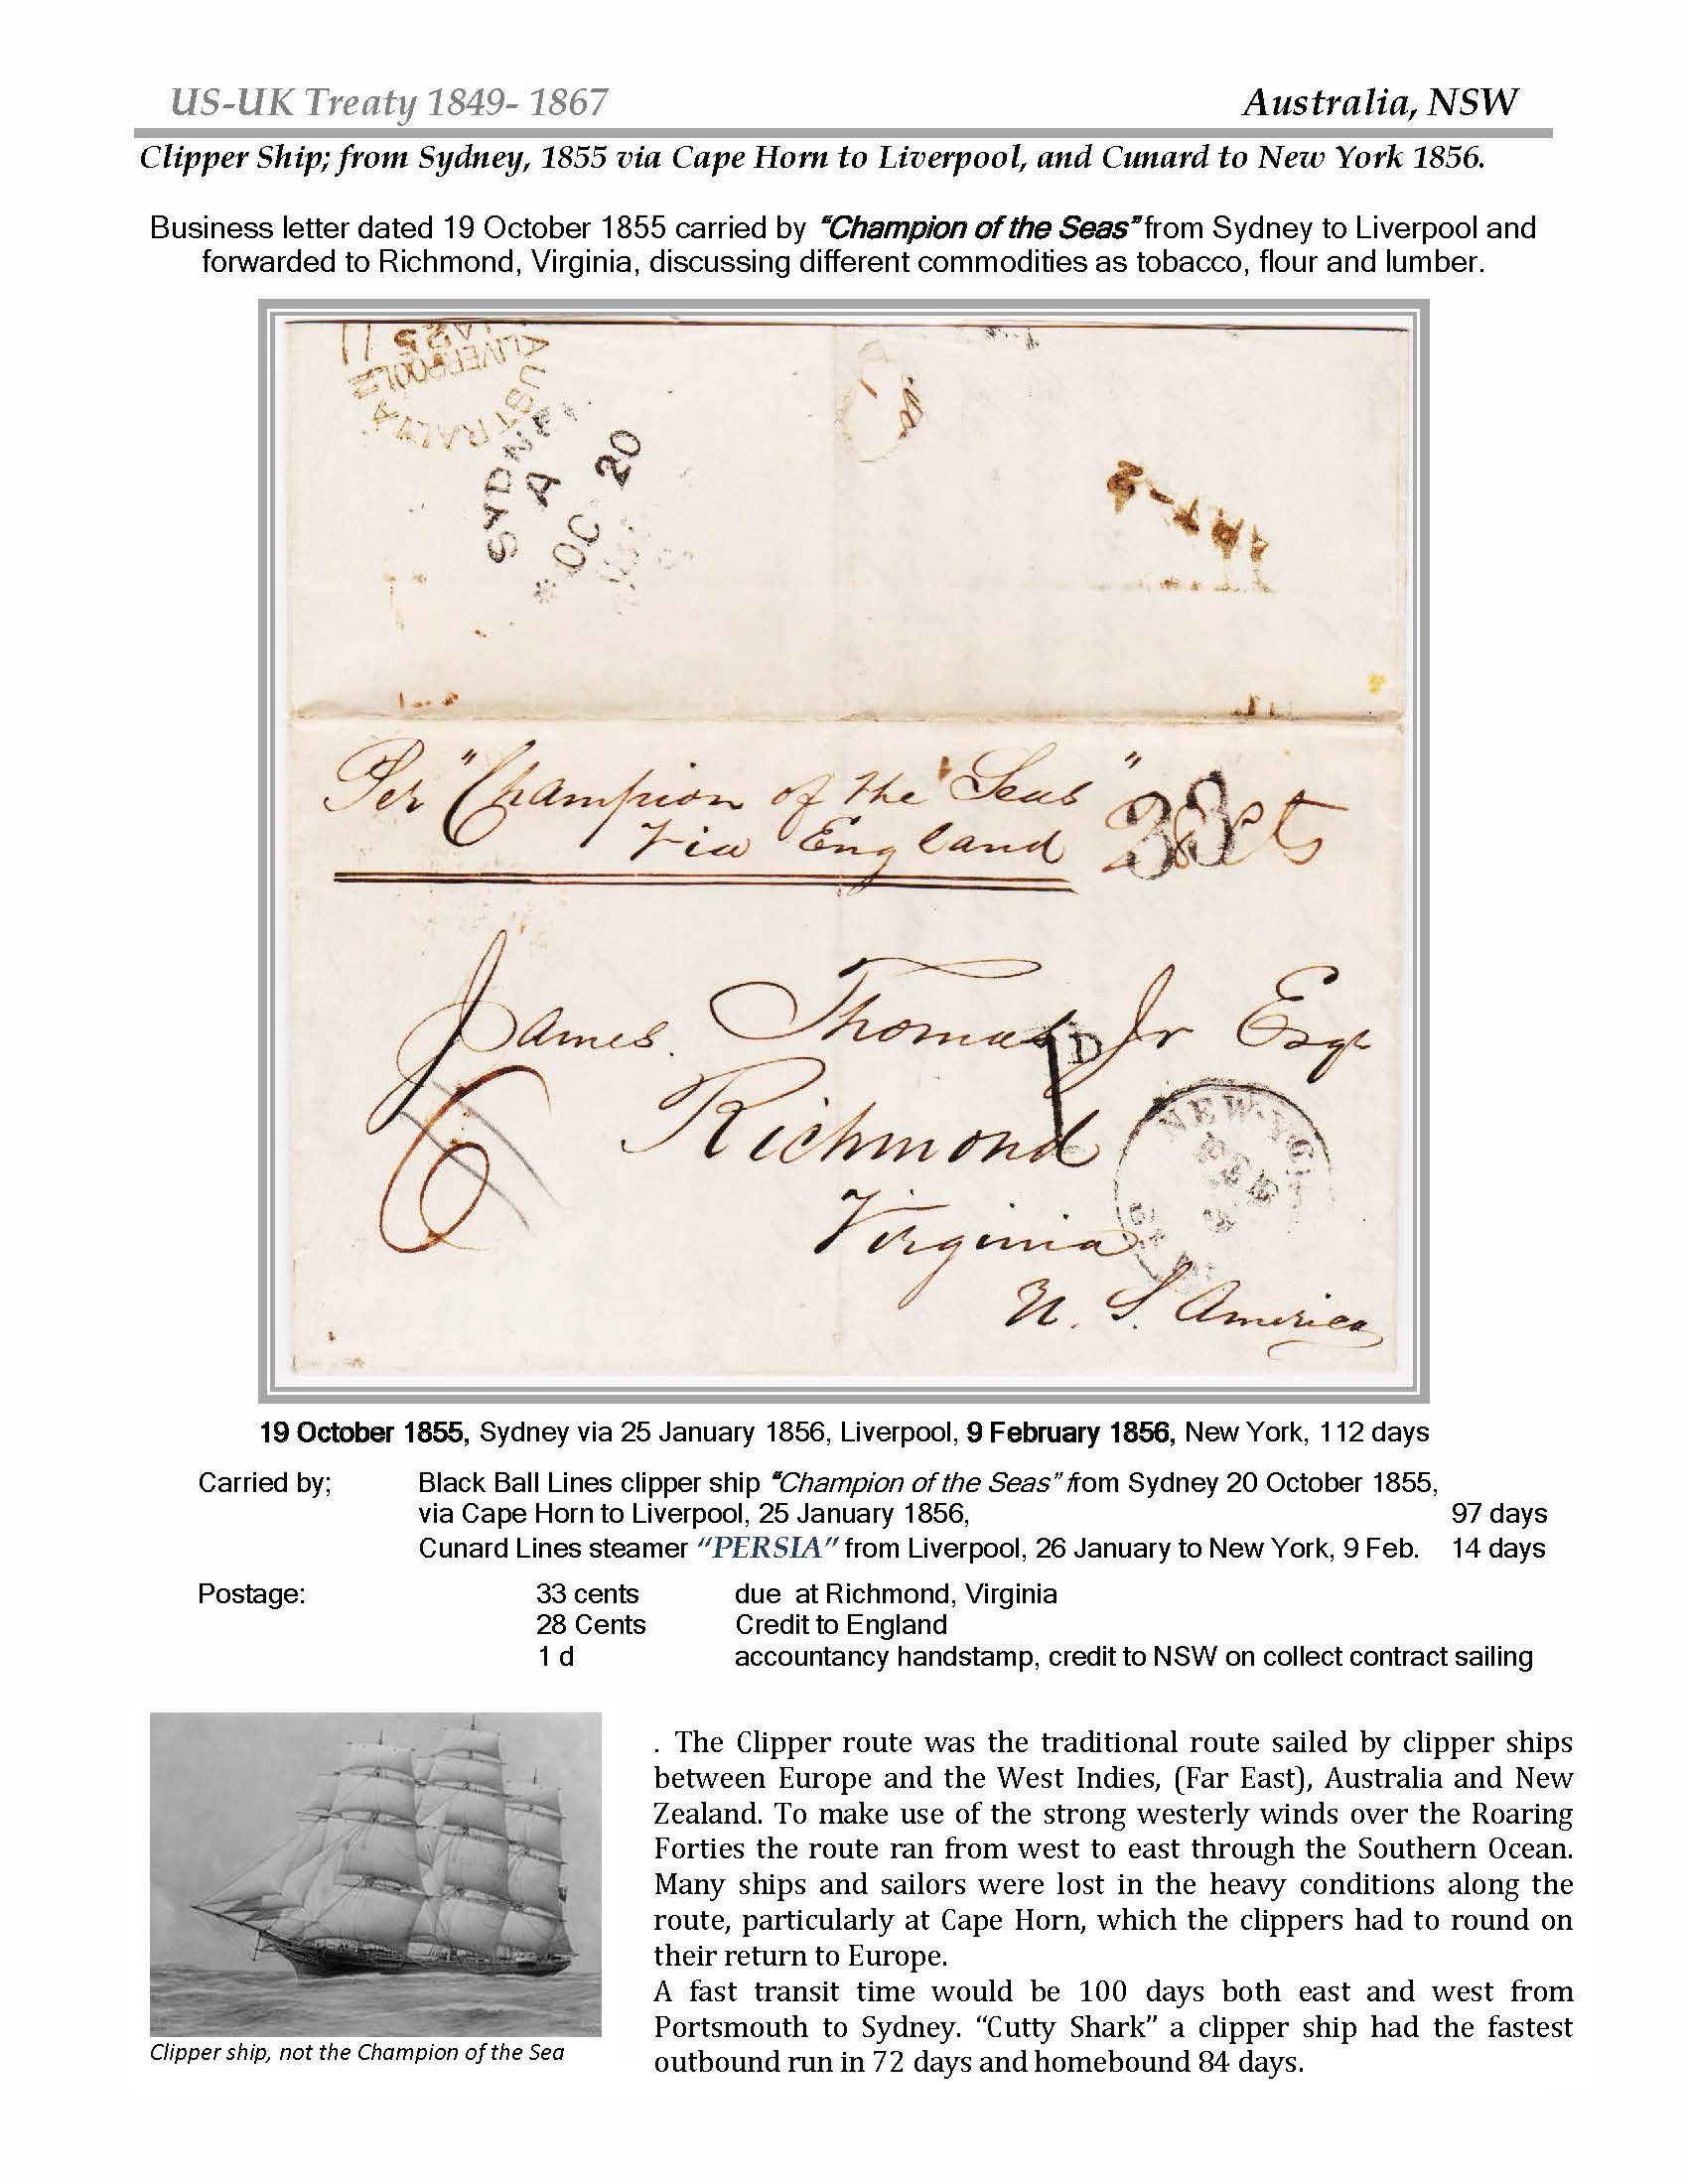 US-UK Treaty 1849- 1867
Australia, NSW
Clipper Ship; from Sydney, 1855 via Cape Horn to Liverpool, and Cunard to New York 1856.
Business letter dated 19 October 1855 carried by "Champion of the Seas" from Sydney to Liverpool and
forwarded to Richmond, Virginia, discussing different commodities as tobacco, flour and lumber.
LIVERPOOL
AUSTRALIA
SYDNEY
A
OC 20
Per "Champion of the Seas"
Via England
33
28 cts
James Thomas Jr Esqr
1 D
6
Richmond
NEW
FEB
Virginia
U. S. America
19 October 1855, Sydney via 25 January 1856, Liverpool, 9 February 1856, New York, 112 days
Carried by; Black Ball Lines clipper ship "Champion of the Seas" from Sydney 20 October 1855,
via Cape Horn to Liverpool, 25 January 1856, 97 days
Cunard Lines steamer "PERSIA" from Liverpool, 26 January to New York, 9 Feb. 14 days
Postage: 33 cents due at Richmond, Virginia
28 Cents Credit to England
1 d accountancy handstamp, credit to NSW on collect contract sailing
. The Clipper route was the traditional route sailed by clipper ships
between Europe and the West Indies, (Far East), Australia and New
Zealand. To make use of the strong westerly winds over the Roaring
Forties the route ran from west to east through the Southern Ocean.
Many ships and sailors were lost in the heavy conditions along the
route, particularly at Cape Horn, which the clippers had to round on
their return to Europe.
A fast transit time would be 100 days both east and west from
Portsmouth to Sydney. "Cutty Shark" a clipper ship had the fastest
outbound run in 72 days and homebound 84 days.
Clipper ship, not the Champion of the Sea